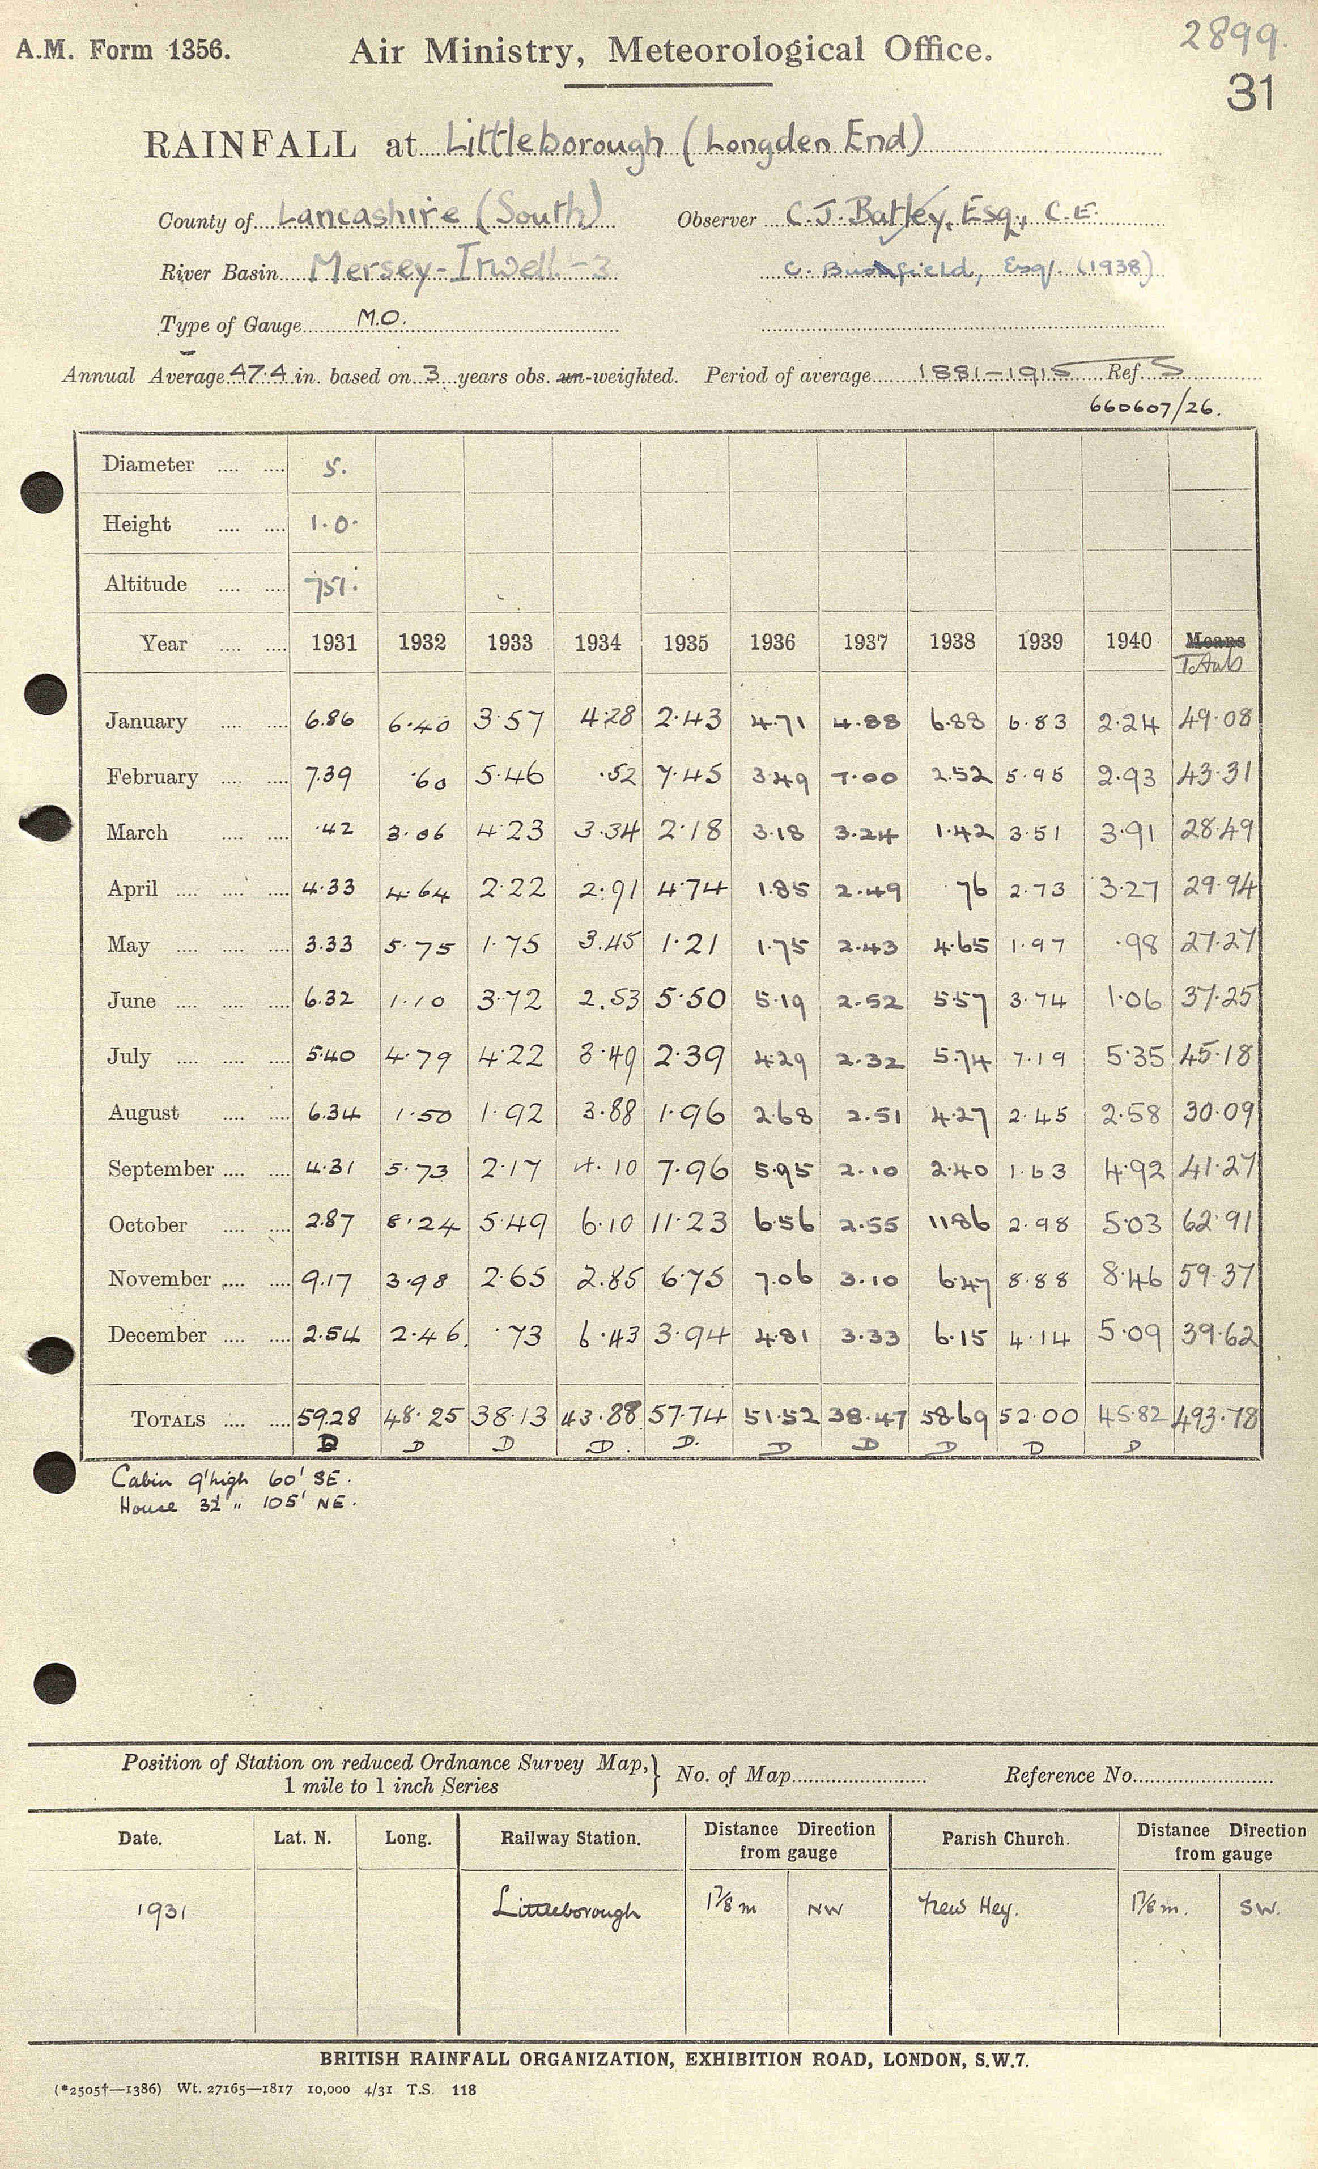 2899.
A.M. Form 1356. Air Ministry, Meteorological Office.
31
RAINFALL at Littleborough (Longden End)
County of Lancashire (South) Observer C. J. Batley, Esq., C.E.
River Basin Mersey-Irwell-3 C. Bushfield, Esq. (1938)
Type of Gauge M.O.
Annual Average 47.4 in. based on 3 years obs. un-weighted. Period of average 1881-1915 Ref. S
660607/26.
Diameter .... .... 5.
Height .... .... 1.0.
Altitude .... .... 751.
Year .... .... 1931 1932 1933 1934 1935 1936 1937 1938 1939 1940 Means
Totals
January .... .... 6.86 6.40 3.57 4.28 2.43 4.71 4.88 6.88 6.83 2.24 49.08
February .... .... 7.39 .60 5.46 .52 7.45 3.49 7.00 2.52 5.95 2.93 43.31
March .... .... .42 3.06 4.23 3.34 2.18 3.18 3.24 1.42 3.51 3.91 28.49
April .... .... .... 4.33 4.64 2.22 2.91 4.74 1.85 2.49 .76 2.73 3.27 29.94
May .... .... .... 3.33 5.75 1.75 3.45 1.21 1.75 2.43 4.65 1.97 .98 27.27
June .... .... .... 6.32 1.10 3.72 2.53 5.50 5.19 2.52 5.57 3.74 1.06 37.25
July .... .... .... 5.40 4.79 4.22 3.49 2.39 4.29 2.32 5.74 7.19 5.35 45.18
August .... .... 6.34 1.50 1.92 3.88 1.96 2.68 2.51 4.27 2.45 2.58 30.09
September .... .... 4.31 5.73 2.17 4.10 7.96 5.95 2.10 2.40 1.63 4.92 41.27
October .... .... 2.87 8.24 5.49 6.10 11.23 6.56 2.55 11.86 2.98 5.03 62.91
November .... .... 9.17 3.98 2.65 2.85 6.75 7.06 3.10 6.47 8.88 8.46 59.37
December .... .... 2.54 2.46 .73 6.43 3.94 4.81 3.33 6.15 4.14 5.09 39.62
TOTALS .... .... 59.28 48.25 38.13 43.88 57.74 51.52 38.47 58.69 52.00 45.82 493.78
D D D D D. D D D D D
Cabin 9' high 60' SE.
House 32 " 105' NE.
Position of Station on reduced Ordnance Survey Map, } No. of Map Reference No.
1 mile to 1 inch Series
Date. Lat. N. Long. Railway Station. Distance Direction Parish Church. Distance Direction
from gauge from gauge
1931 Littleborough 1⅞ m NW New Hey. 1⅞ m. SW.
BRITISH RAINFALL ORGANIZATION, EXHIBITION ROAD, LONDON, S.W.7.
(*2505†—1386) Wt. 27165—1817 10,000 4/31 T.S. 118